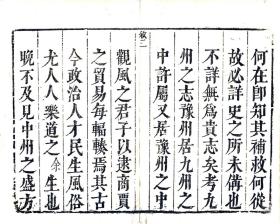 何在卽知其補救何從
故必詳史之所未備也
不詳無為貴志矣考九
州之志豫州居九州之
中許屬又居豫州之中
敘二
觀風之君子以逮商賈
之貿易每輻輳焉其古
今政治人才民生風俗
尤人人樂道之余生也
晚不及見中州之盛方